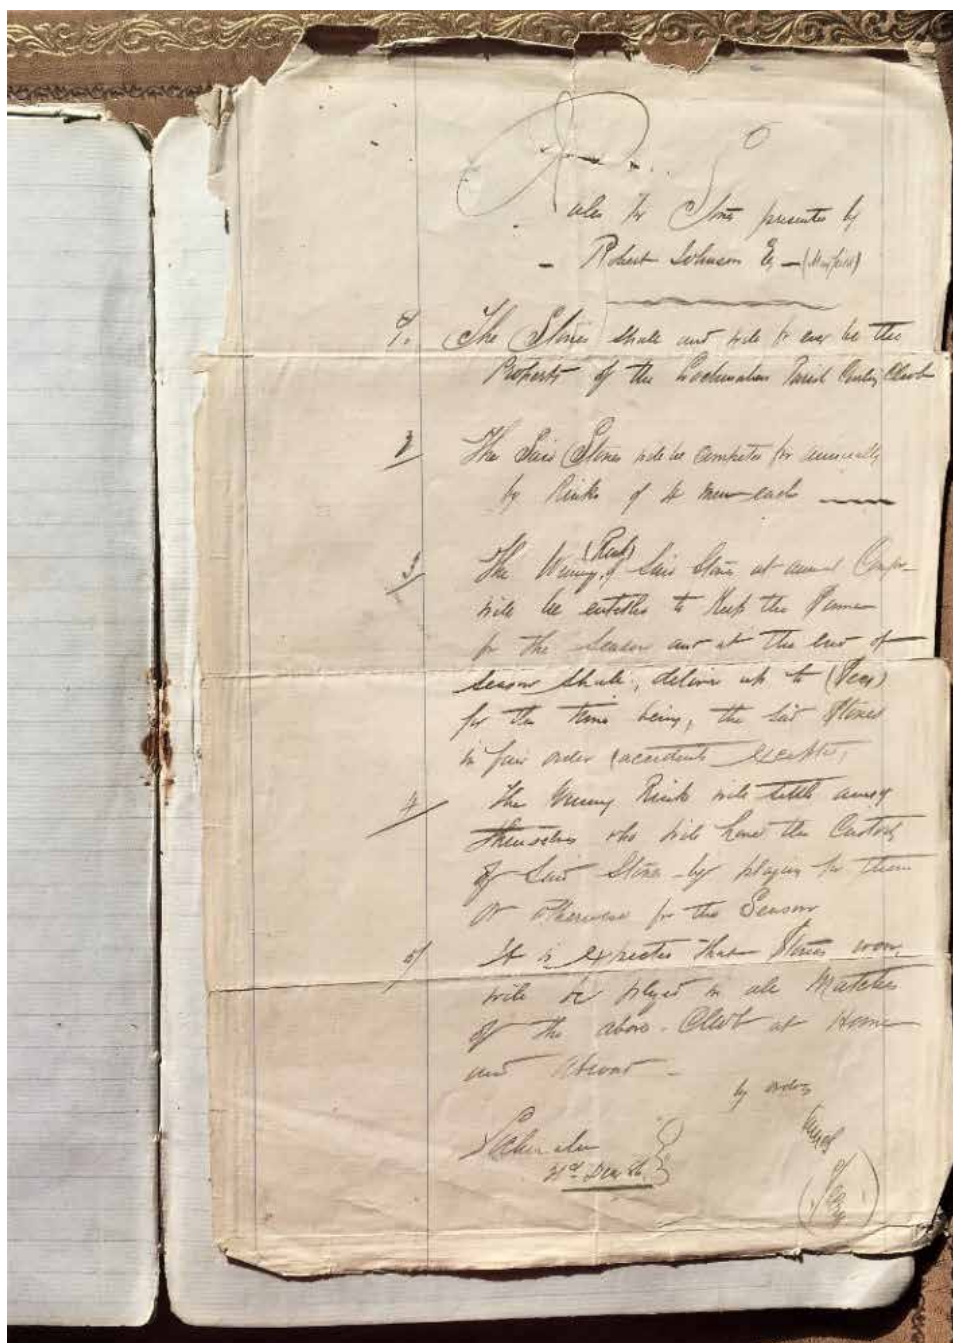 Rules for Stones presented by
Robert Johnson Esq —
1. The Stones shall and will for ever be the
Property of the Lochmaben Parish Curling Club
2 The Said Stones will be competed for annually
by Rinks of 4 men each
3 The Winning (Rink) of Said Stones at annual Comp.
will be entitled to Keep the Same
for the Season and at the end of
Season shall, deliver up to (Secy)
for the time being, the said Stones
in fair order (accidents excepted,
4 The Winning Rink will settle among
themselves who will have the Custody
of Said Stones by playing for them
or otherwise for the Season
5 It is expected that Stones won,
will be played in all Matches
of the above Club at Home
and Abroad
by order
Lochmaben
Secy